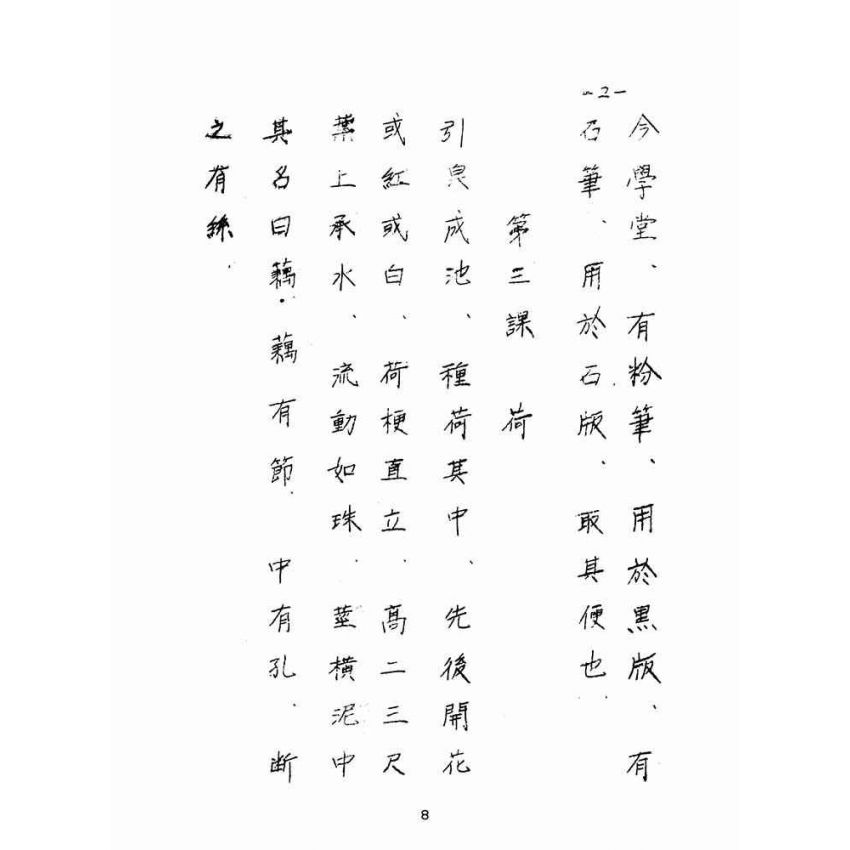 -2-
今學堂、有粉筆、用於黑版、有
石筆、用於石版、取其便也.
第三課 荷
引泉成池、種荷其中、先後開花
或紅或白、荷梗直立.高二三尺
葉上承水、流動如珠.莖橫泥中
其名曰藕.藕有節.中有孔.斷
之有絲.
8